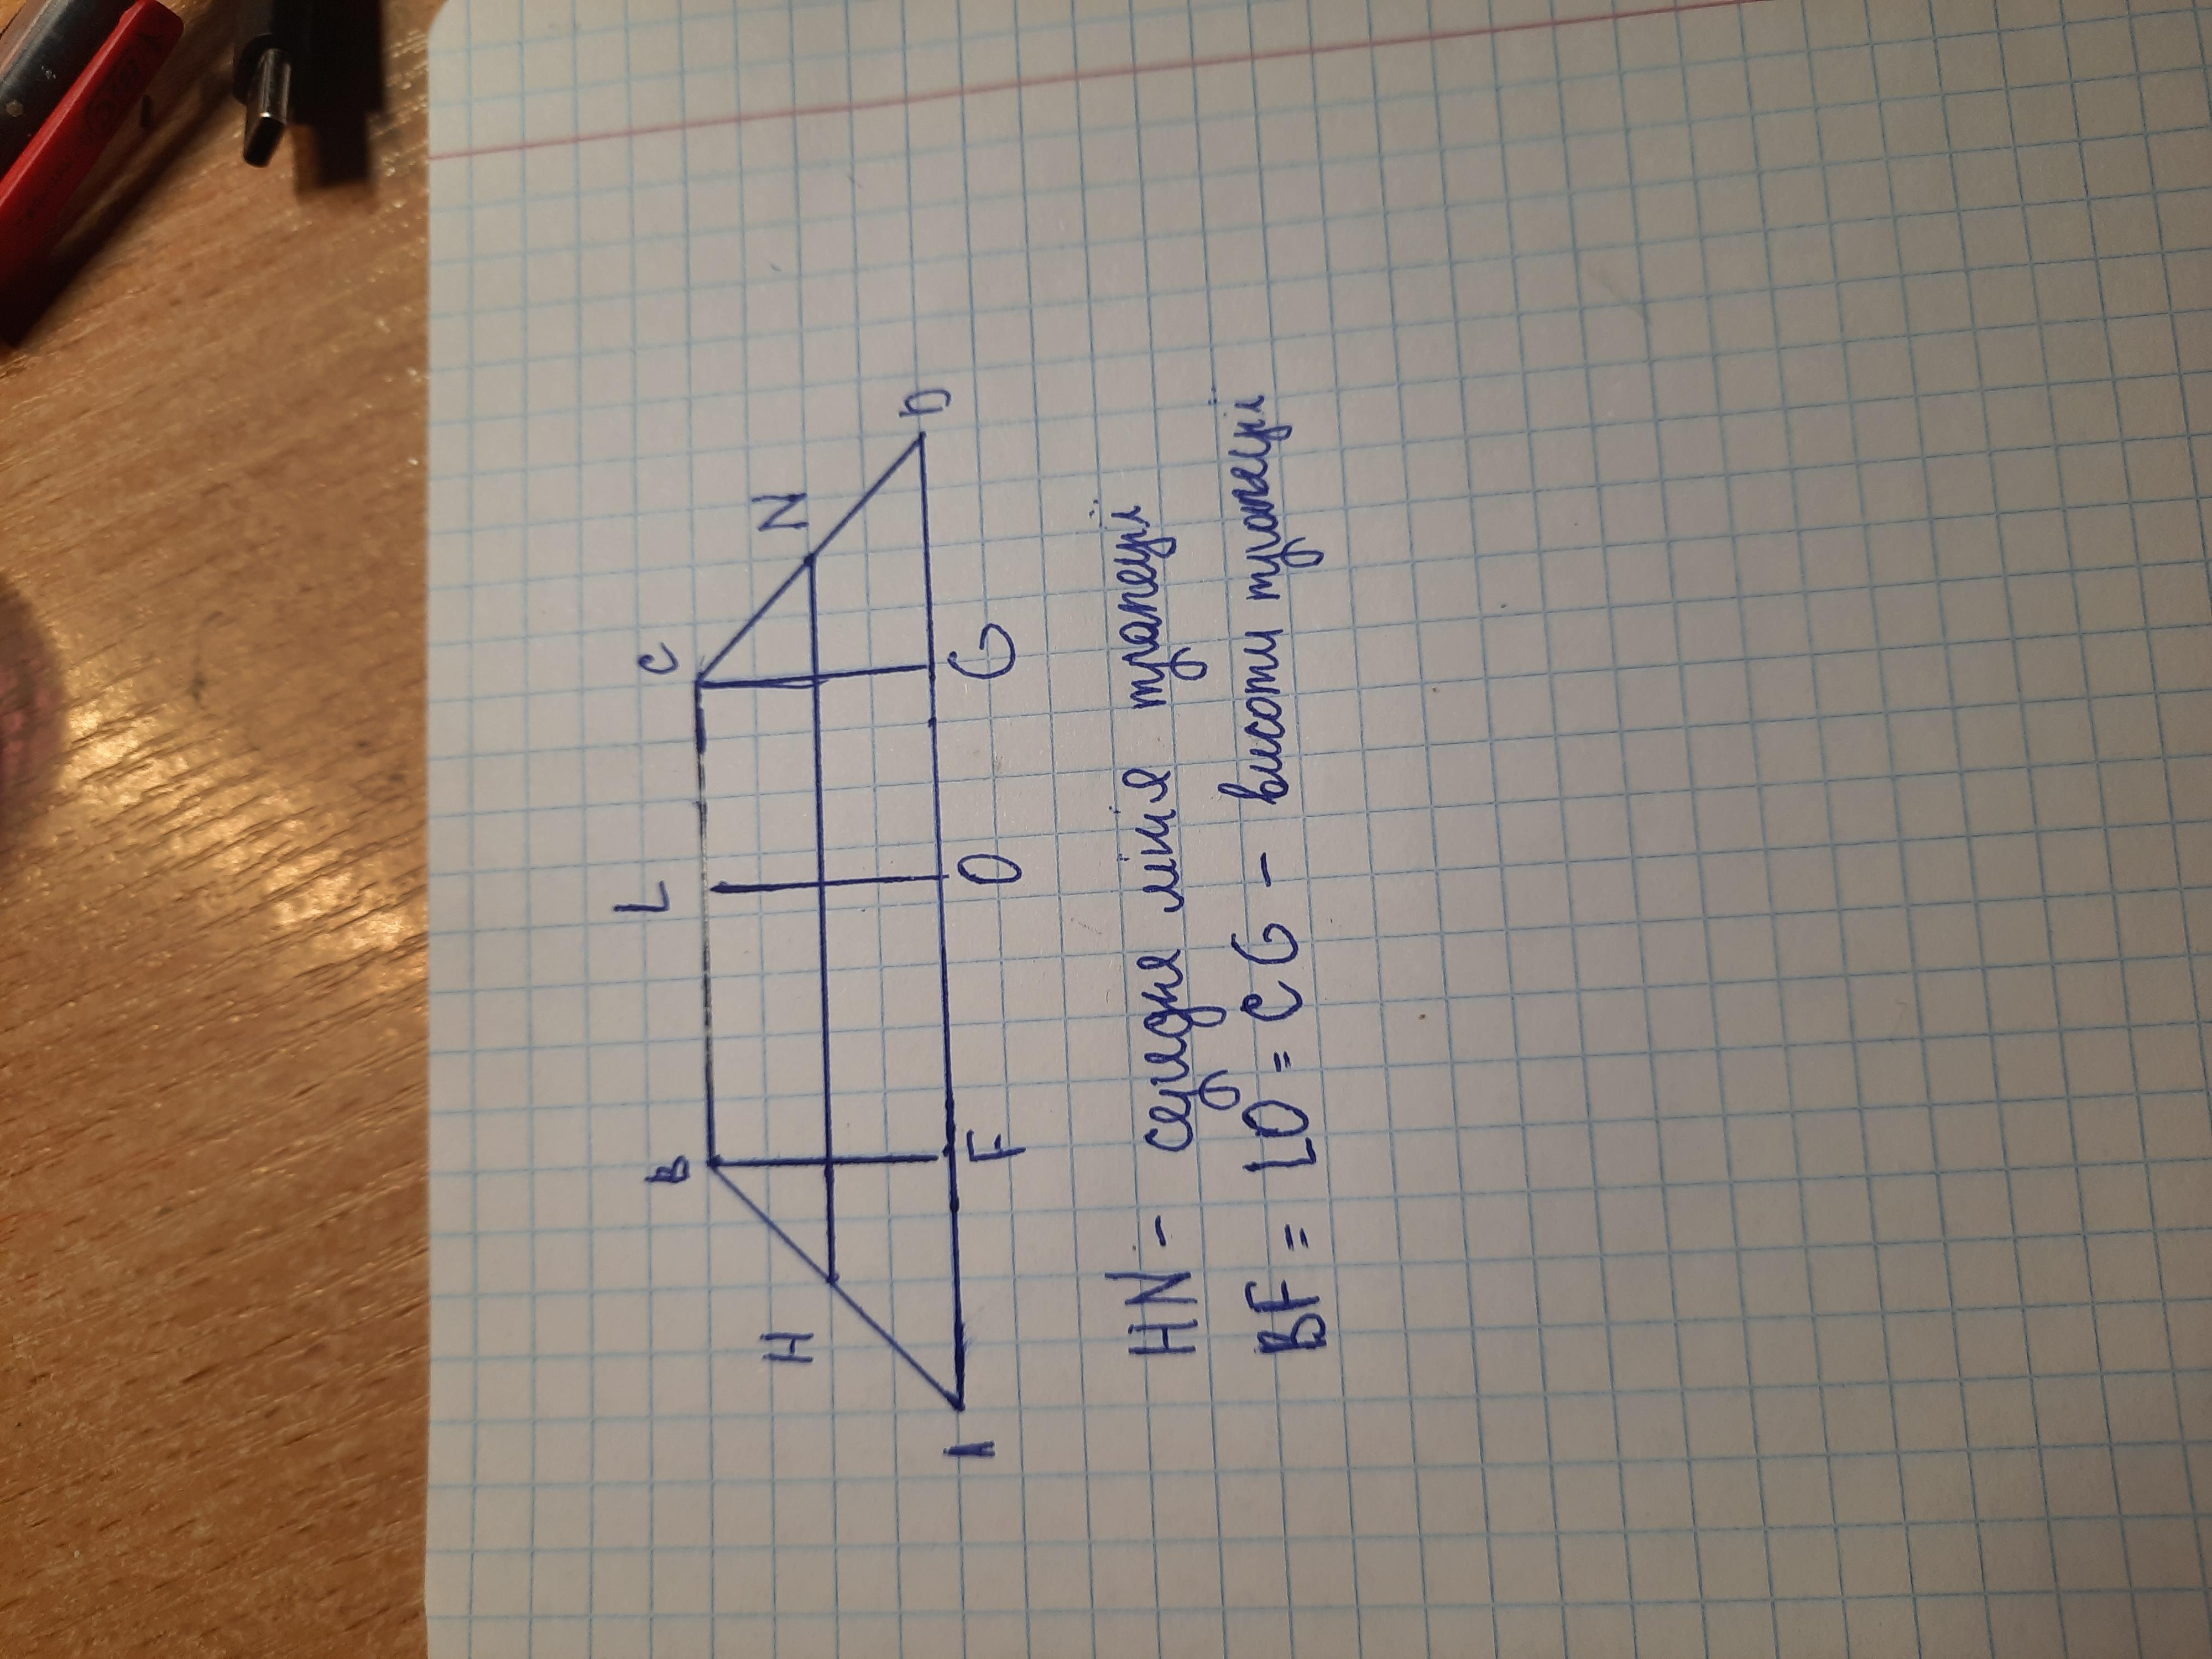 L
B C
H N
A F O G D
HN - середня лінія трапеції
BF = LO = CG - висоти трапеції